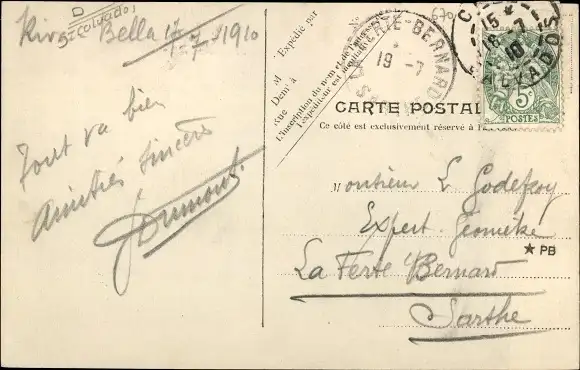 Riva Bella 17/7/1910
D
(Calvados)
Tout va bien
Amitiés sincères
Dumont
M
Expédié par
M
Demt à
Rue
L'inscription du nom et de l'adresse de
l'expéditeur est facultative
LA FERTE-BERNARD
19 -7
15 *
18 -7
10
CALVADOS
5c
POSTES
CARTE POSTALE
Ce côté est exclusivement réservé à l'adresse
Monsieur L Godefroy
Expert Géomètre
★ PB
La Ferté Bernard
Sarthe